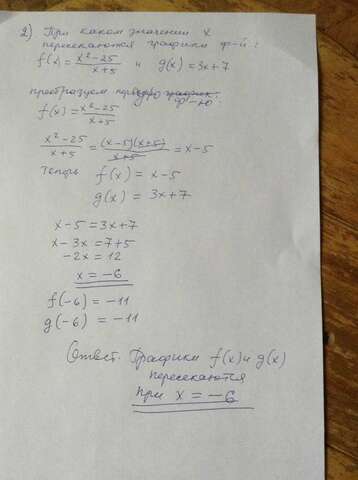 2) При каком значении x
пересекаются графики ф-й:
f(x) = x²-25 / x+5 и g(x) = 3x+7
преобразуем первую ф-ю:
f(x) = x²-25 / x+5
x²-25 / x+5 = (x-5)(x+5) / x+5 = x-5
теперь f(x) = x-5
g(x) = 3x+7
x-5 = 3x+7
x-3x = 7+5
-2x = 12
x = -6
f(-6) = -11
g(-6) = -11
Ответ. Графики f(x) и g(x)
пересекаются
при x = -6